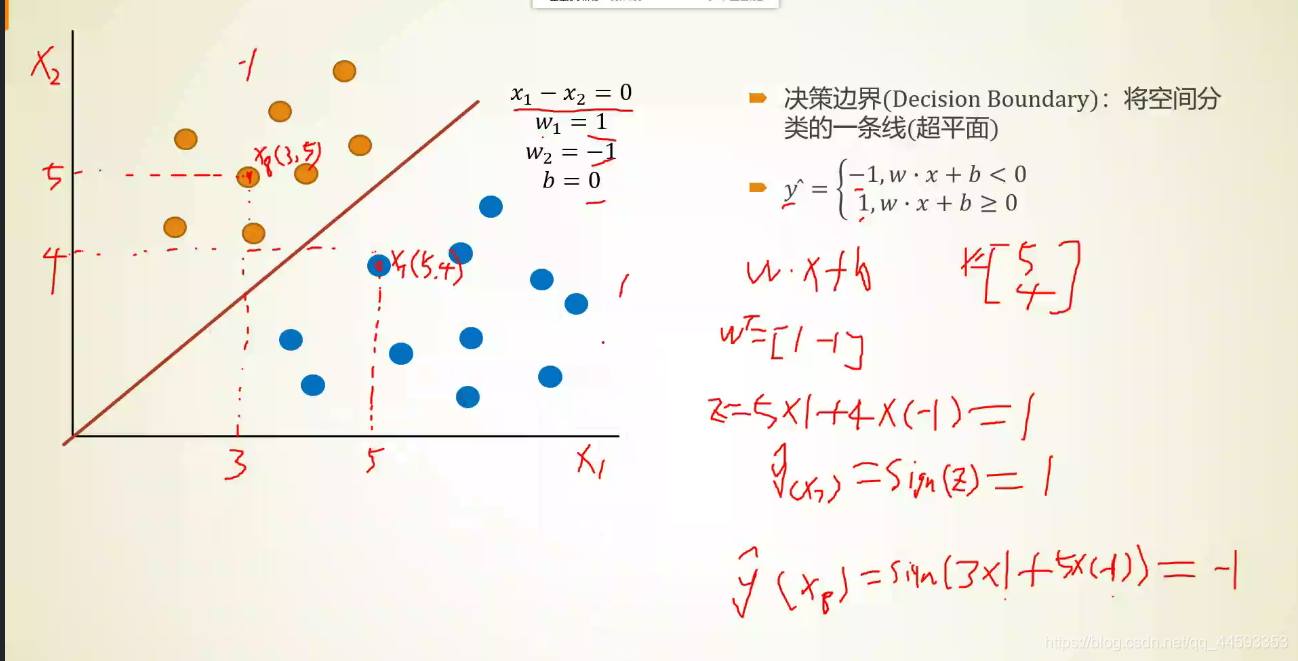 X₂
-1
x₈(3,5)
5
4
x₇(5.4)
1
3
5
X₁
x₁ − x₂ = 0
w₁ = 1
w₂ = −1
b = 0
决策边界(Decision Boundary)：将空间分
类的一条线(超平面)
y^ = { −1, w · x + b < 0
1, w · x + b ≥ 0
w·x+b
x=[5 4]
wᵀ=[1 -1]
z=5×1+4×(-1)=1
ŷ(x₇)=sign(z)=1
ŷ(x₈)=sign(3×1+5×(-1))=-1
https://blog.csdn.net/qq_44593353